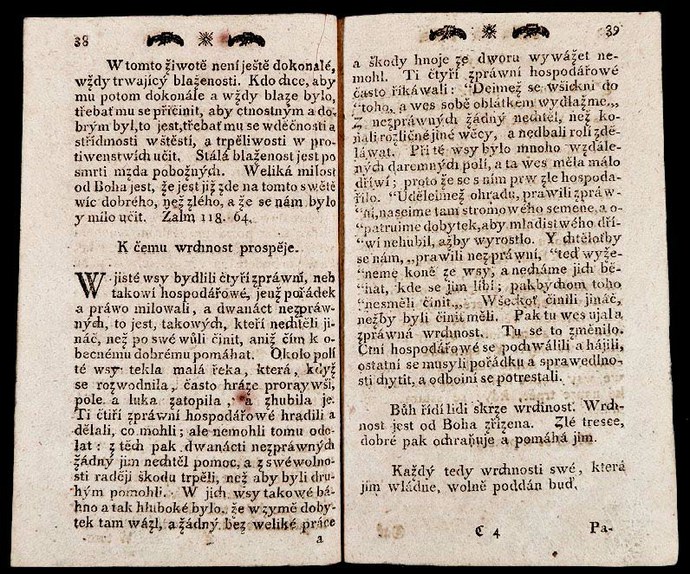 38
W tomto žiwotě není ještě dokonalé,
wždy trwajícý blaženosti. Kdo chce, aby
mu potom dokonále a wždy blaze bylo,
třebať mu se přičinit, aby ctnostným a do-
brým byl, to jest, třebať mu se wděčnosti a
střídmosti w štěstí, a trpěliwosti w pro-
tiwenstwích učit. Stálá blaženost jest po
smrti mzda pobožných. Weliká milost
od Boha jest, že jest již zde na tomto swětě
wíc dobrého, než zlého, a že se nám bylo
y milo učit. Žalm 118. 64.
K čemu wrchnost prospěje.
W jisté wsy bydlili čtyří zpráwní, neb
takowí hospodářowé, jenž pořádek
a práwo milowali, a dwanáct nezpráw-
ných, to jest, takowých, kteří nechtěli ji-
náč, než po swé wůli činit, aniž čím k o-
becnému dobrému pomáhat. Okolo polí
té wsy tekla malá řeka, která, když
se rozwodnila, často hráze prorawši,
pole a luka zatopila, a zhubila je.
Ti čtiří zpráwní hospodářowé hradili a
dělali, co mohli; ale nemohli tomu odo-
lat: z těch pak dwanácti nezpráwných
žádný jim nechtěl pomoc, a z swéwolno-
sti raději škodu trpěli, než aby byli dru-
hým pomohli. W jich wsy takowé bá-
hno a tak hluboké bylo, že w zymě doby-
tek tam wázl, a žádný bez weliké práce
a
39
a škody hnoje ze dworu wywážet ne-
mohl. Ti čtyří zpráwní hospodářowé
často říkáwali: “Dejmež se wšickni do
“toho, a wes sobě oblátkem wydlažme.„
Z nezpráwných žádný nechtěl, než ko-
nali rozličné jiné wěcy, a nedbali rolí zdě-
láwat. Při té wsy bylo mnoho wzdále-
ných daremných polí, a ta wes měla málo
dříwí; proto že se s ním prw zle hospoda-
řilo. “Udělejmež ohradu, prawili zpráw-
“ní, nasejme tam stromowého semene, a o-
“patrujme dobytek, aby mladistwého dří-
“wí nehubil, ažby wyrostlo. Y chtěloťby
se nám, „prawili nezpráwní, “teď wyže-
“neme koně ze wsy, a necháme jich bě-
“hat, kde se jim líbí; pakbychom toho
“nesměli činit.„ Wšeckoť činili jináč,
nežby byli činiti měli. Pak tu wes ujala
zpráwná wrchnost. Tu se to změnilo.
Ctní hospodářowé se pochwálili a hájili,
ostatní se musyli pořádku a sprawedlno-
sti chytit, a odbojní se potrestali.
Bůh řídí lidi skrze wrchnost. Wrch-
nost jest od Boha zřízena. Zlé tresce,
dobré pak ochraňuje a pomáhá jim.
Každý tedy wrchnosti swé, která
jím wládne, wolně poddán buď.
C 4
Pa-